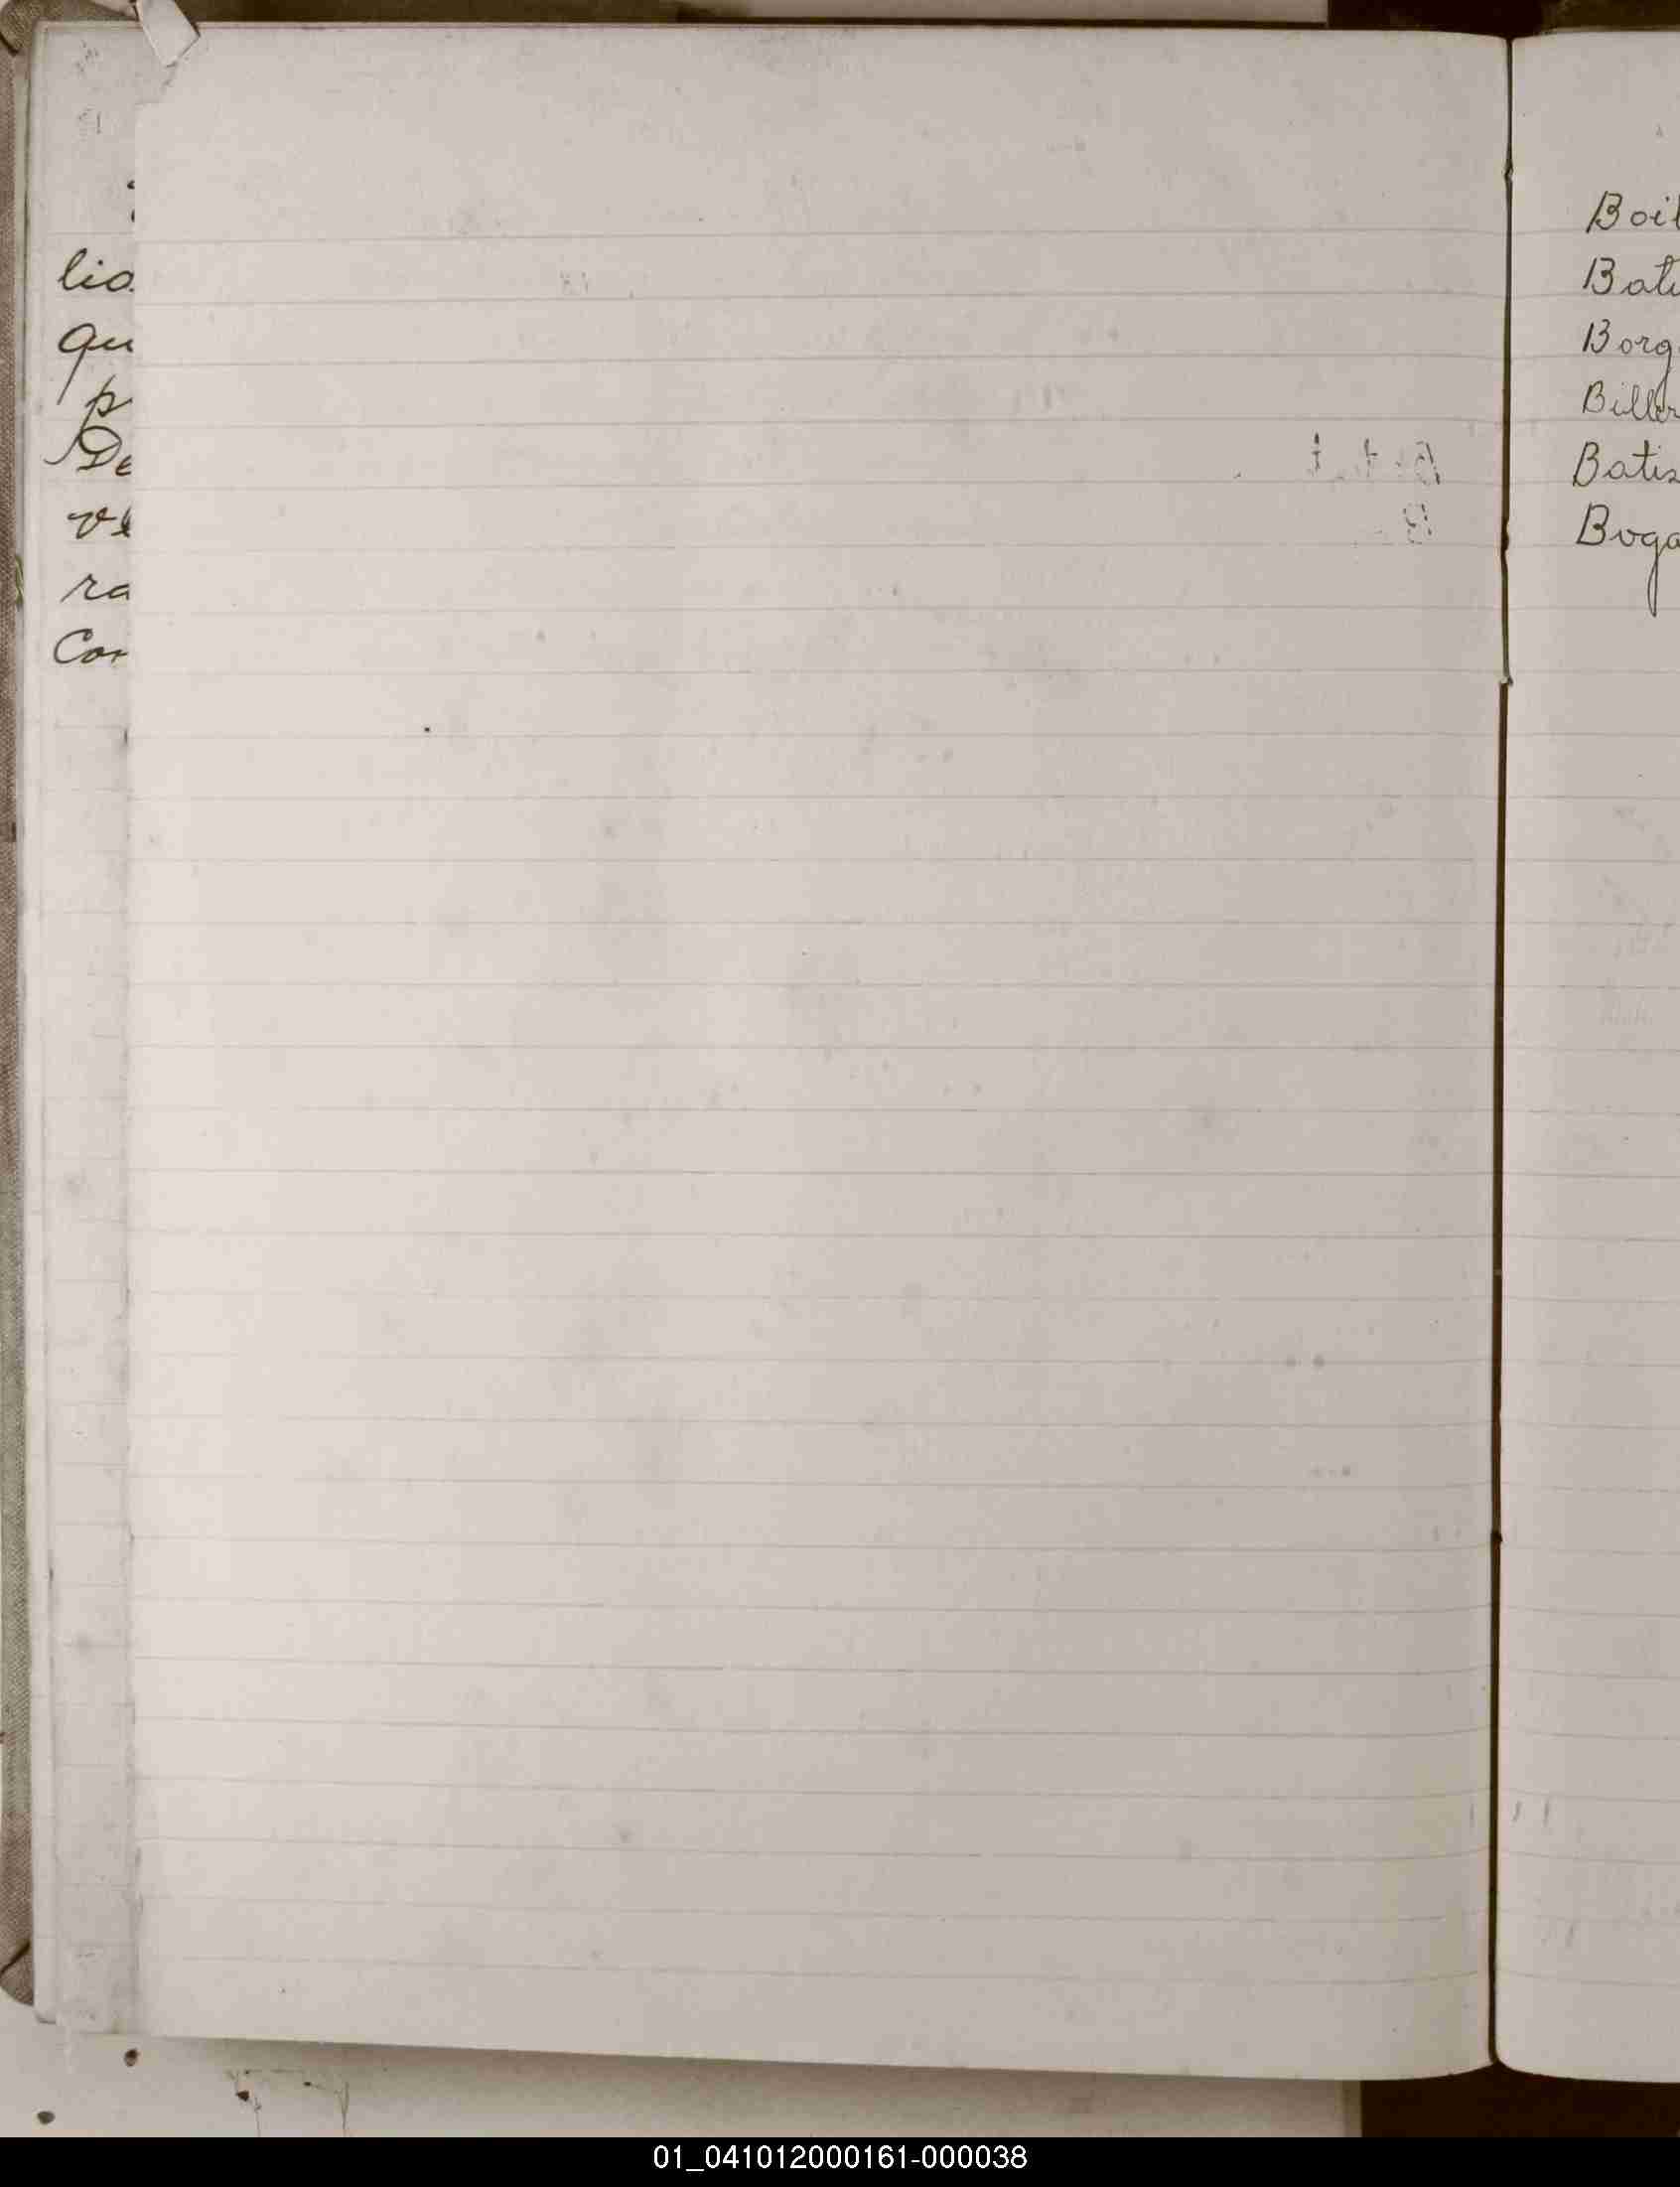 lio
qu
p
De
ve
ra
Cor
Boil
Bati
Borg
Biller
Batis
Boga
01_041012000161-000038